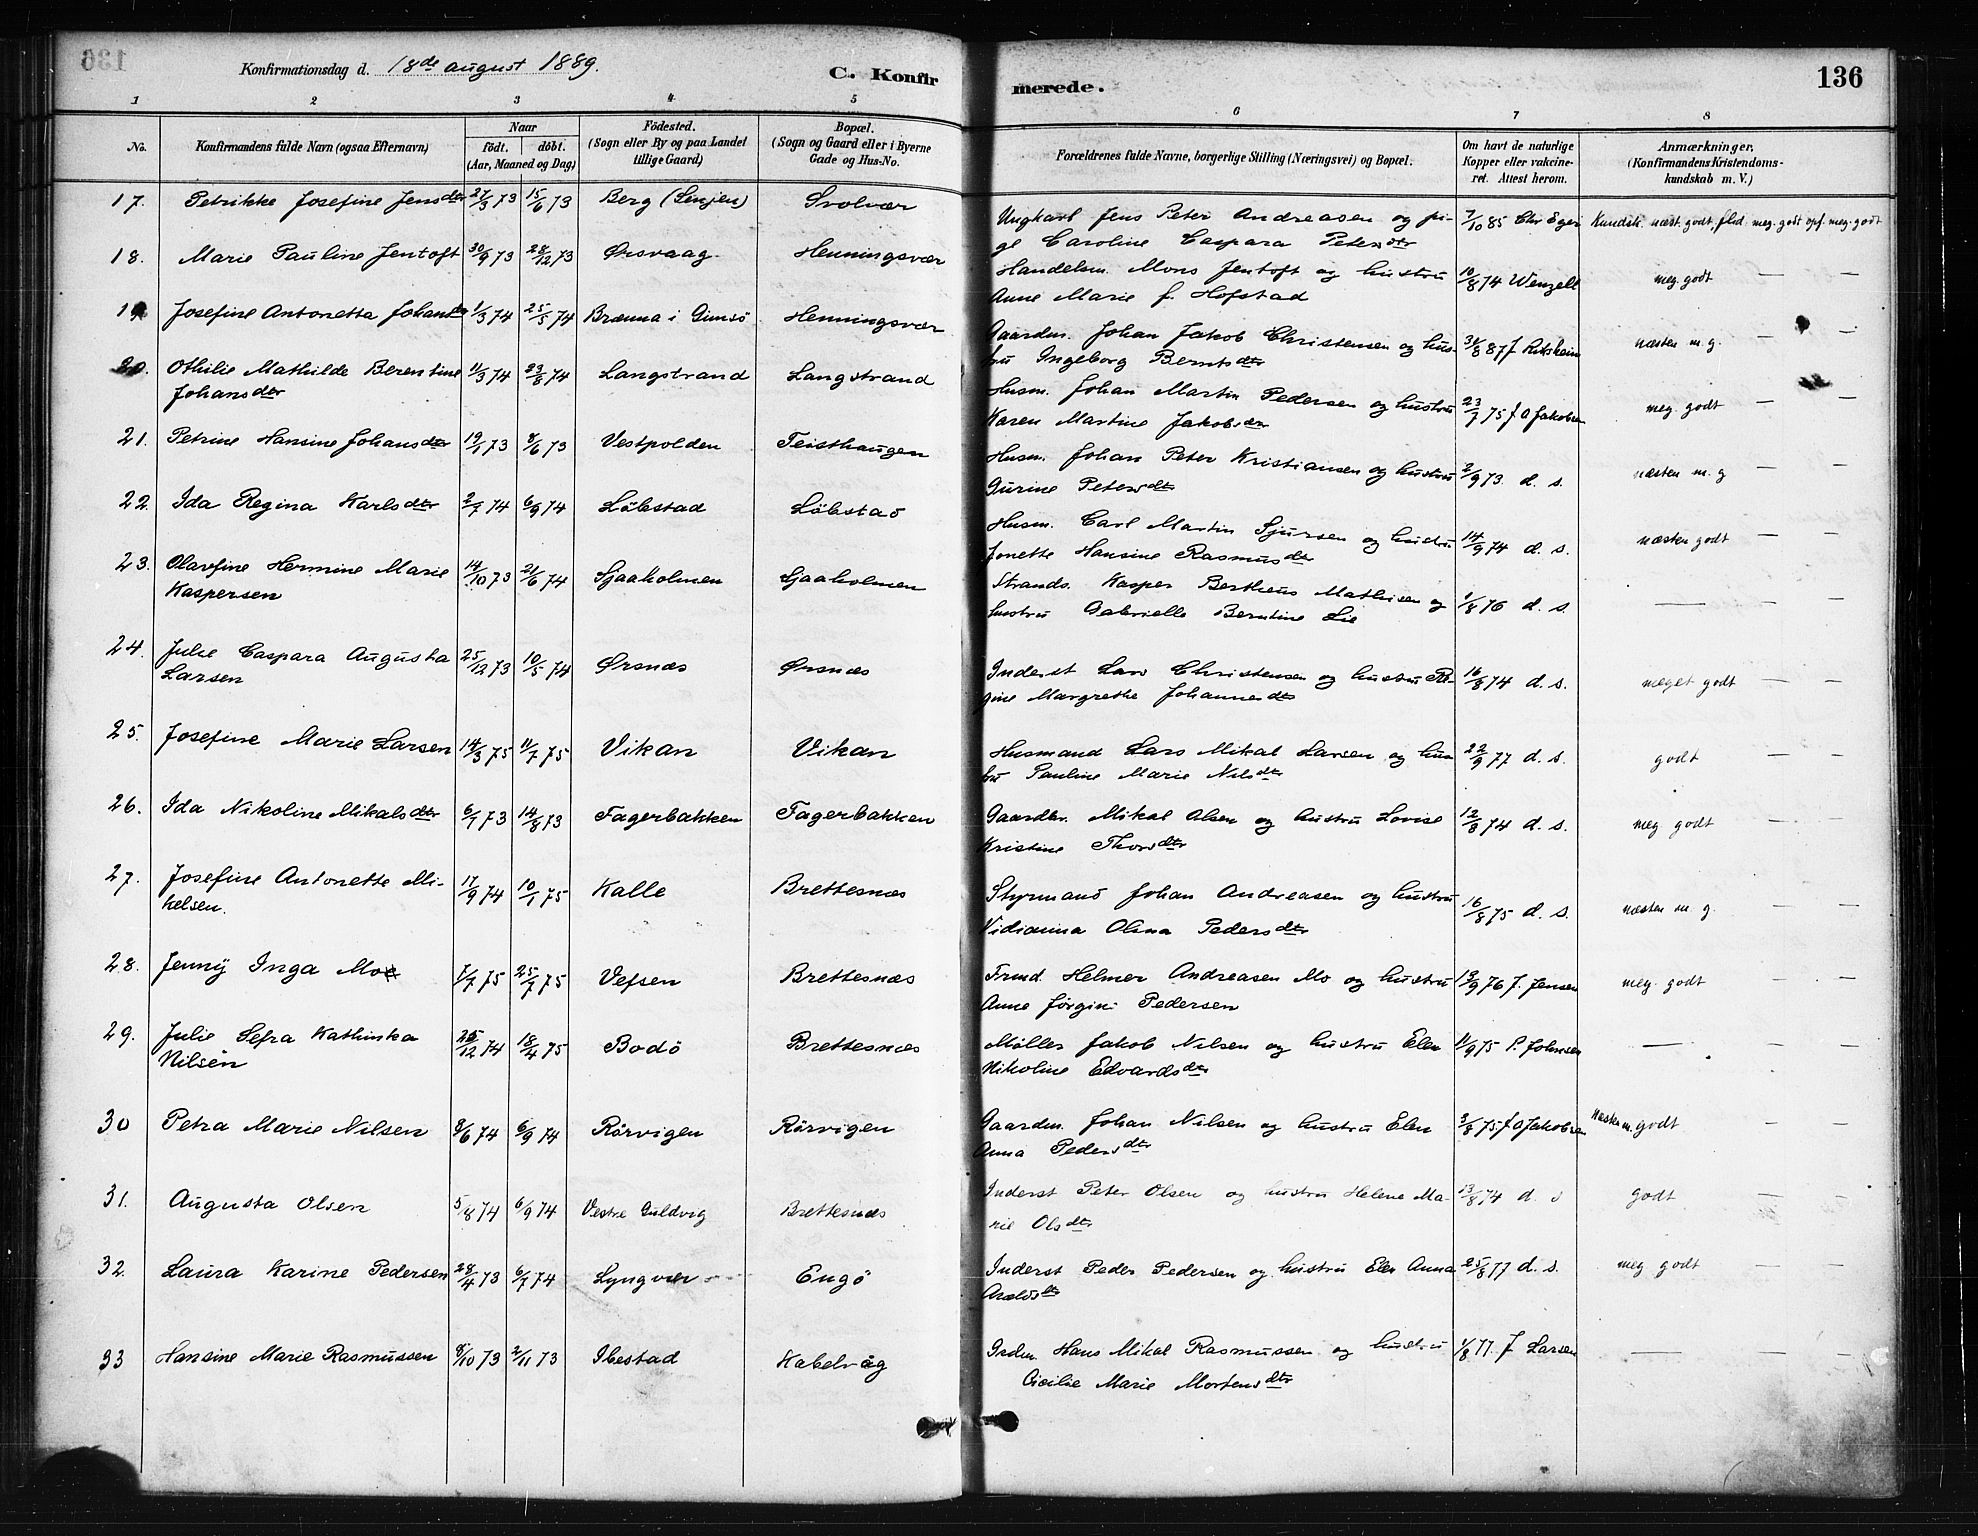 136
Konfirmationsdag d. 18de august 1889.
C. Konfir
merede.
136
1 2 3 4 5 6 7 8
No.
Konfirmandens fulde Navn (ogsaa Efternavn)
Naar
födt. döbt.
(Aar, Maaned og Dag)
Födested.
(Sogn eller By og paa Landet
tillige Gaard)
Bopæl.
(Sogn og Gaard eller i Byerne
Gade og Hus-No.
Forældrenes fulde Navne, borgerlige Stilling (Næringsvei) og Bopæl.
Om havt de naturlige
Kopper eller vakcine-
ret. Attest herom.
Anmærkninger.
(Konfirmandens Kristendoms-
kundskab m. V.)
17. Petrikke Josefine Jensdtr 27/3 73 15/6 73 Berg (Senjen) Svolvær
Ungkarl Jens Peter Andreasen og pi- 7/10 85 Chr Eger Kundsk. næst. godt, flid. meg. godt opf. meg. godt
ge Caroline Caspara Petersdtr
18. Marie Pauline Jentoft 30/9 73 28/12 73 Ørsvaag Henningsvær
Handelsm. Mons Jentoft og hustru 10/8 74 Wenzell meg. godt — —
Anne Marie f. Hofstad
19. Josefine Antonetta Johansdtr 1/3 74 25/5 74 Brænna i Gimsö Henningsvær
Gaardm. Johan Jakob Christensen og hus- næsten m. g. — —
tru Ingeborg Berntsdtr
20. Othilie Mathilde Berentine 11/3 74 23/8 74 Langstrand Langstrand
Johansdtr
Husm. Johan Martin Pedersen og hustru 23/7 75 J O Jakobsen meg. godt — —
Karen Martine Jakobsdtr
21. Petrine Hansine Johansdtr 19/1 73 8/6 73 Vestpolden Teisthaugen
Husm. Johan Peter Kristiansen og hustru 2/9 73 d. s. næsten m. g — —
Gurine Petersdtr
22. Ida Regina Karlsdtr 2/7 74 6/9 74 Löbstad Löbstad
Husm. Carl Martin Sjursen og hustru 14/9 74 d. s. næsten godt — —
Jonette Hansine Rasmusdtr
23. Olavfine Hermine Marie 14/10 73 21/6 74 Sjaaholmen Sjaaholmen
Kaspersen
Strands. Kasper Bertheus Mathisen og 1/8 76 d. s. — — —
hustru Gabrielle Berntine Lie
24. Julie Caspara Augusta 25/12 73 10/5 74 Ørsnæs Ørsnæs
Larsen
Inderst Lars Christensen og hustru Re- 16/8 74 d. s. meget godt — —
gine Margrethe Johannesdtr
25. Josefine Marie Larsen 14/3 75 11/7 75 Vikan Vikan
Husmand Lars Mikal Larsen og hus- 22/9 77 d. s. godt — —
tru Pauline Marie Nilsdtr
26. Ida Nikoline Mikalsdtr 6/7 73 14/8 73 Fagerbakken Fagerbakken
Gaardbr. Mikal Olsen og hustru Lovise 12/8 74 d. s. meg godt — —
Kristine Thorsdtr
27. Josefine Antonette Mi- 17/9 74 10/1 75 Kalle Brettesnæs
kelsen.
Styrmand Johan Andreasen og hustru 16/8 75 d. s. næsten m. g. — —
Vidianna Olina Pedersdtr
28. Jenny Inga Mo 7/7 75 25/7 75 Vefsen Brettesnæs
Helmer Andreasen Mo og hustru 19/9 76 J. Jensen meg. godt — —
Anne Jørgin: Pedersen
29. Julie Sefra Kathinka 25/12 74 18/4 75 Bodö Brettesnæs
Nilsen
Møller Jakob Nilsen og hustru Elen 11/9 75 P. Johnsen — — —
Nikoline Edvardsdtr
30 Petra Marie Nilsen 9/6 74 6/9 74 Rörvigen Rörvigen
Gaardm. Johan Nilsen og hustru Elen 3/8 75 J O Jakobsen Næsten m. godt — —
Anna Pedersdtr
31. Augusta Olsen 5/8 74 6/9 74 Vestre Guldvig Brettesnæs
Inderst Peter Olsen og hustru Helene Ma- 13/8 74 d. s godt — —
rie Olsdtr
32. Laura Karine Pedersen 28/4 73 6/7 74 Lyngvær Engö
Inderst Peder Pedersen og hustru Elen Anna 25/8 77 d. s. meg godt — —
33 Hansine Marie Rasmussen 8/10 73 2/11 73 Ibestad Kabelvåg
Inder. Hans Mikal Rasmussen og hustru 1/8 77. J Larsen — — —
Cicilie Marie Mortensdtr